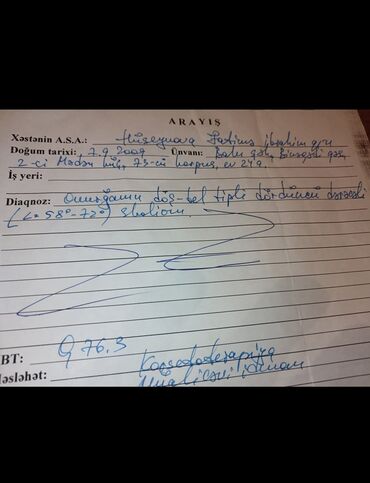 ARAYIŞ
Xəstənin A.S.A.: Hüseynova Fatimə İbrahim qızı
Doğum tarixi: 7.9.2009 Ünvanı: Bakı şəh, Binəqədi qəs,
2-ci Mədən küç, 73-cü korpus, ev 249.
İş yeri:
Diaqnoz: Onurğanın döş-bel tipli dördüncü dərəcəli
(∠=58°-72°) skolioz
BT: Q 76.3
Məsləhət: Korsetoterapiya
Müalicəvi idman